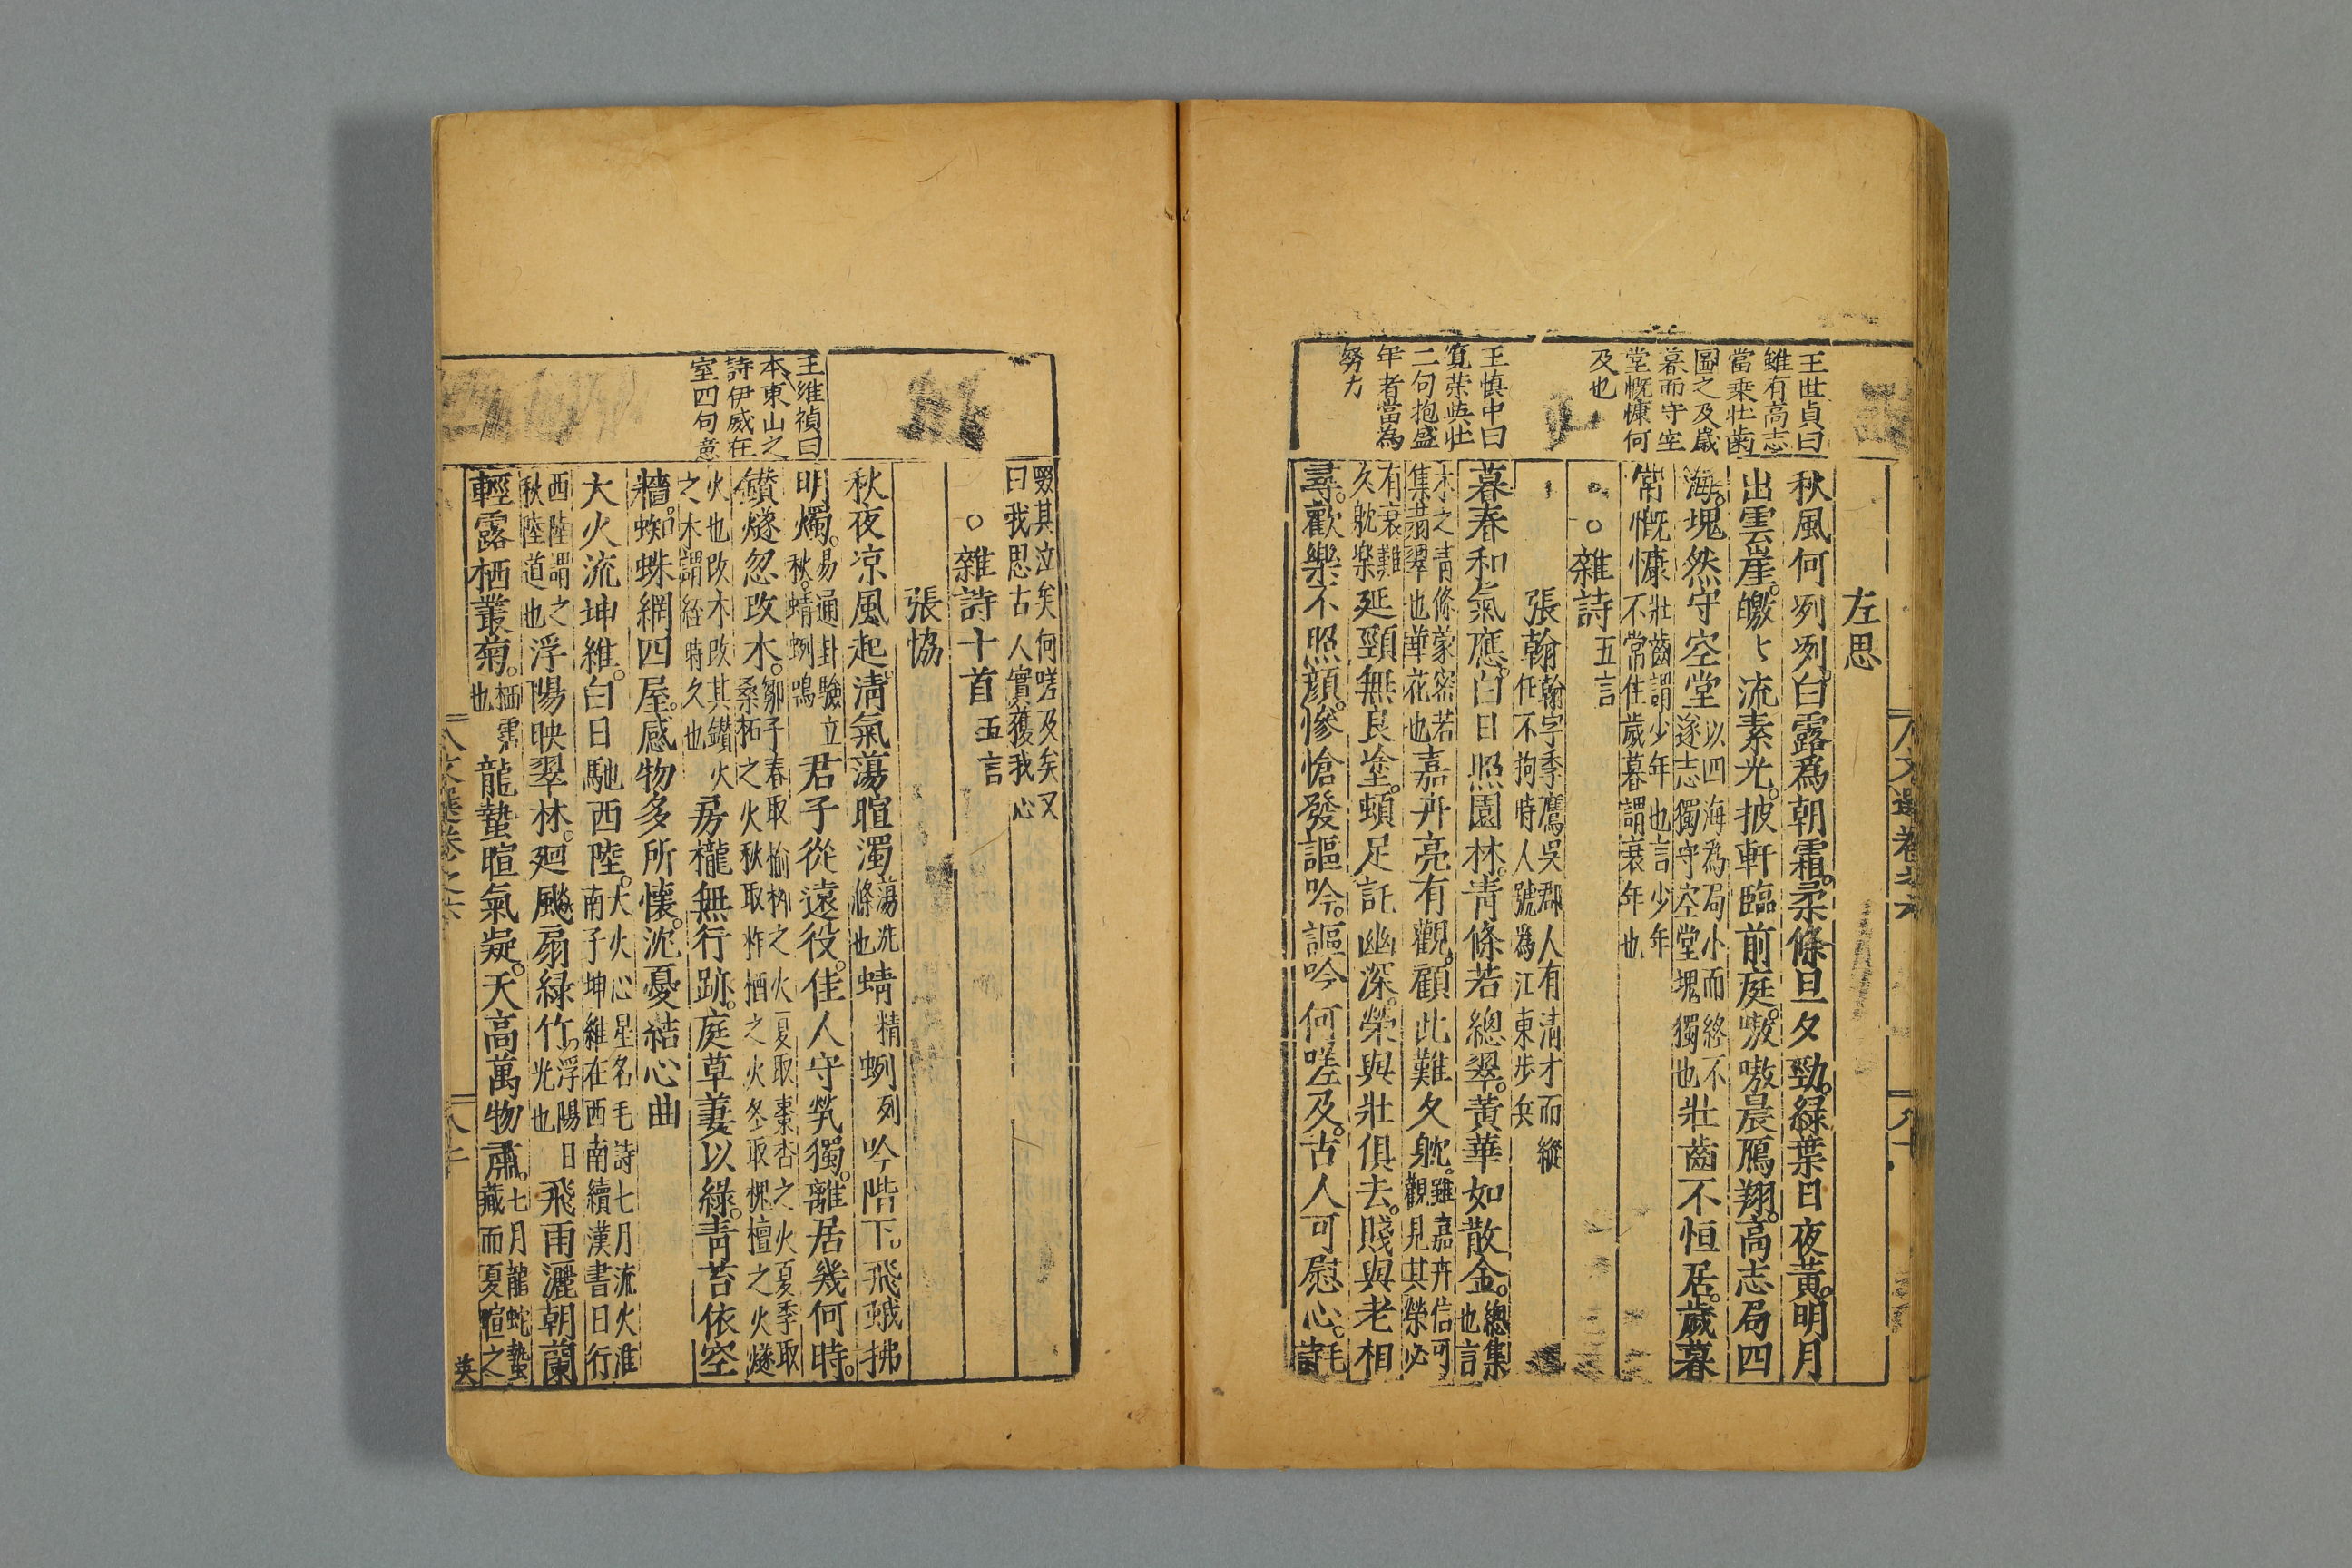 文選卷之六
左思
王世貞曰
雖有高志
當乘壯齒
圖之及歲
暮而守空
堂慨慷何
及也
秋風何冽冽。白露爲朝霜。柔條旦夕勁。綠葉日夜黃。明月
出雲崖。皦〻流素光。披軒臨前庭。嗷嗷晨鴈翔。高志局四
海。塊然守空堂以四海為局小而終不遂志獨守空堂塊獨也壯齒不恒居。歲暮
常慨慷壯齒謂少年也言少年不常住歲暮謂衰年也
○雜詩五言
張翰翰字季鷹吳郡人有清才而縱任不拘時人號為江東步兵
王慎中曰
覽榮與壯
二句抱盛
年者當為
努力
暮春和氣應。白日照園林。青條若總翠。黃華如散金。總集也言
木之青條蒙密若集翡翠也華花也嘉卉亮有觀。顧此難久躭。雖嘉卉信可觀見其榮必
有衰難久躭樂延頸無良塗。頓足託幽深。榮與壯俱去。賤與老相
尋。歡樂不照顏。慘愴發謳吟。謳吟何嗟及。古人可慰心。毛詩
啜其泣矣何嗟及矣又曰我思古人實獲我心
○雜詩十首五言
張協
秋夜凉風起。清氣蕩暄濁蕩洗滌也蜻精蛚列吟階下。飛蛾拂
王維禎曰
本東山之
詩伊威在
室四句意
明燭。易通卦驗立秋。蜻蛚鳴君子從遠役。佳人守煢獨。離居幾何時。
鑚燧忽改木。鄒子春取榆柳之火夏取棗杏之火夏季取桑柘之火秋取柞楢之火冬取槐檀之火燧
火也改木改其鑚火之木謂經時久也房櫳無行跡。庭草萋以綠。青苔依空
牆。蜘蛛網四屋。感物多所懷。沈憂結心曲
大火流坤維。白日馳西陸。大火心星名毛詩七月流火淮南子坤維在西南續漢書日行
西陸謂之秋陸道也浮陽映翠林。廻飇扇綠竹。浮陽日光也飛雨灑朝蘭
輕露栖叢菊。栖霑也龍蟄暄氣凝。天高萬物肅。七月龍蛇蟄藏而夏暄之
文選卷之六